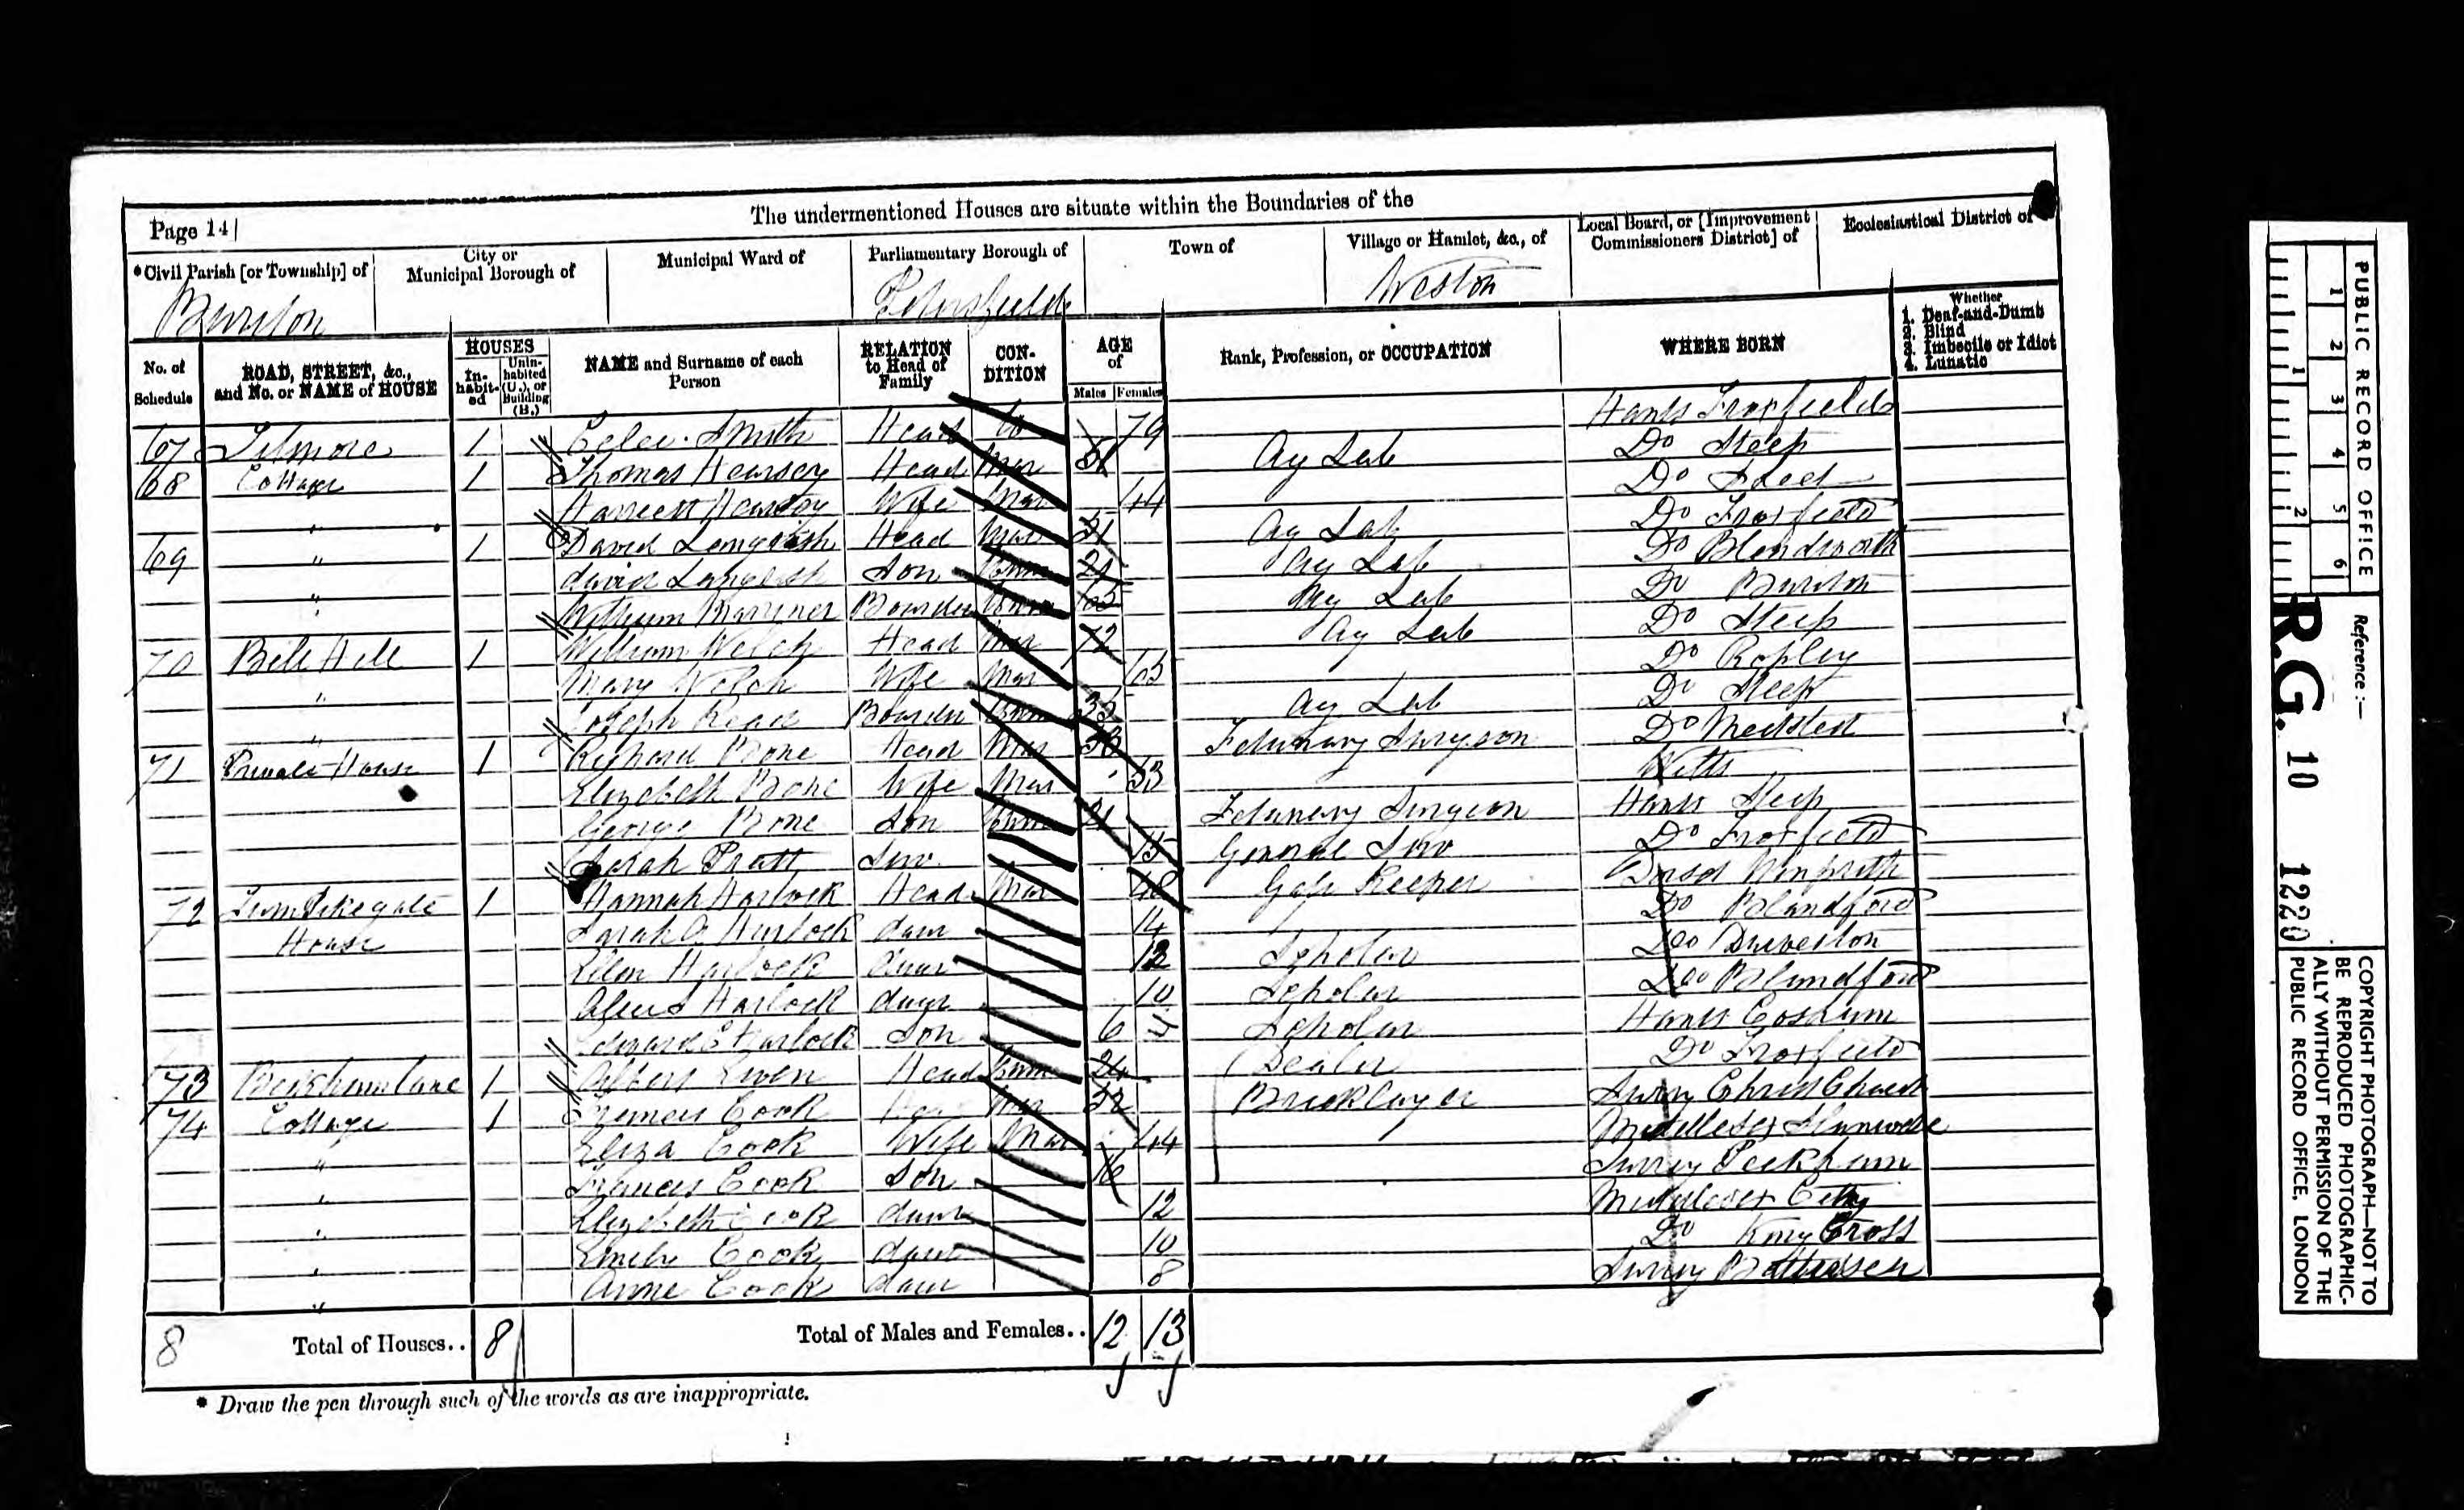 Page 14
The undermentioned Houses are situate within the Boundaries of the
*Civil Parish [or Township] of
City or Municipal Borough of
Municipal Ward of
Parliamentary Borough of
Town of
Village or Hamlet, &c., of
Local Board, or [Improvement Commissioners District] of
Ecclesiastical District of
Buriton Petersfield Weston
No. of Schedule
ROAD, STREET, &c., and No. or NAME of HOUSE
HOUSES
In-habit-ed
Unin-habited (U.), or Building (B.)
NAME and Surname of each Person
RELATION to Head of Family
CON-DITION
AGE of
Males Females
Rank, Profession, or OCCUPATION
WHERE BORN
Whether
1. Deaf-and-Dumb
2. Blind
3. Imbecile or Idiot
4. Lunatic
67 Tilmore 1 Smith Head 79 Hants Froxfield
68 Cottage 1 Thomas Hearsey Head Mar 51 Ag Lab Do Steep
" Harriett Hearsey Wife Mar 44 Do
69 " 1 David Langrish Head Mar 51 Ag Lab Do Froxfield
" David Langrish Son 21 Ag Lab Do Blendworth
" William Boarder Ag Lab Do Buriton
70 Bell Hill 1 William Welch Head Mar 72 Ag Lab Do Steep
" Mary Welch Wife Mar 65 Do Ropley
" Joseph Read Boarder 35 Ag Lab Do Steep
71 Private House 1 Richard Bone Head Mar Vetunary Surgeon Do Medsted
Elizabeth Bone Wife Mar 53 Wilts
George Bone Son 21 Vetunary Surgeon Hants Steep
Sarah Pratt Serv. 15 General Serv Do Froxfield
72 Turnpikegate 1 Hannah Harlock Head Mar 48 Gate Keeper Dorset Winfrith
House Sarah A Harlock daur 14 Do Blandford
Ellen Harlock daur 12 Scholar Do
Harlock daur 10 Scholar Do Blandford
Edward E Harlock Son 6 Scholar Hants Cosham
73 1 Albert Head 24 Dealer Do Froxfield
74 Cottage 1 Francis Cook Head Mar 52 Bricklayer Surry Christ Church
" Eliza Cook Wife Mar 44 Middlesex
" Francis Cook Son 16 Surrey Peckham
" Elizabeth Cook daur 12 Middlesex City
" Emily Cook daur 10 Do King Cross
" Anne Cook daur 8 Surry Battersea
8 Total of Houses.. 8 Total of Males and Females.. 12 13
* Draw the pen through such of the words as are inappropriate.
PUBLIC RECORD OFFICE
1 2 3 4 5 6
1 2
Reference :—
R.G. 10 1220
COPYRIGHT PHOTOGRAPH—NOT TO
BE REPRODUCED PHOTOGRAPHIC-
ALLY WITHOUT PERMISSION OF THE
PUBLIC RECORD OFFICE, LONDON